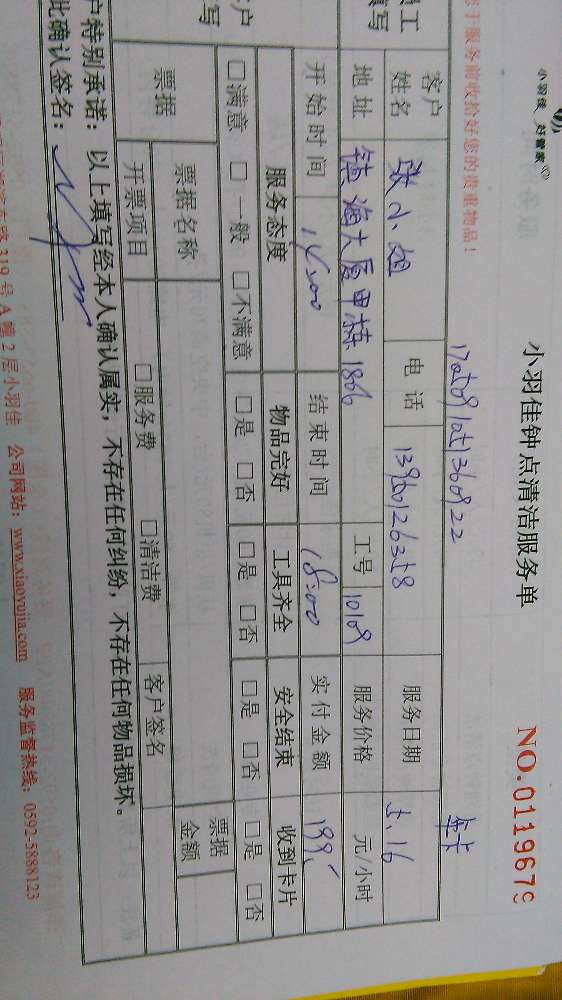 小羽佳 好管家
小羽佳钟点清洁服务单
NO.011967
于服务前收拾好您的贵重物品！
年卡
客户姓名 张小姐 电话 服务日期 5.16
地址 镇海大厦甲栋1806 工号 10109 服务价格 元/小时
开始时间 14:00 结束时间 18:00 实付金额 199.
服务态度 物品完好 工具齐全 安全结束 收到卡片
□满意 □一般 □不满意 □是 □否 □是 □否 □是 □否 □是 □否
票据 票据名称 票据金额
开票项目 □服务费 □清洁费 客户签名
户特别承诺：以上填写经本人确认属实，不存在任何纠纷，不存在任何物品损坏。
此确认签名：
路319号A幢2层小羽佳 公司网站：www.xiaoyujia.com 服务监督热线：0592-5888123